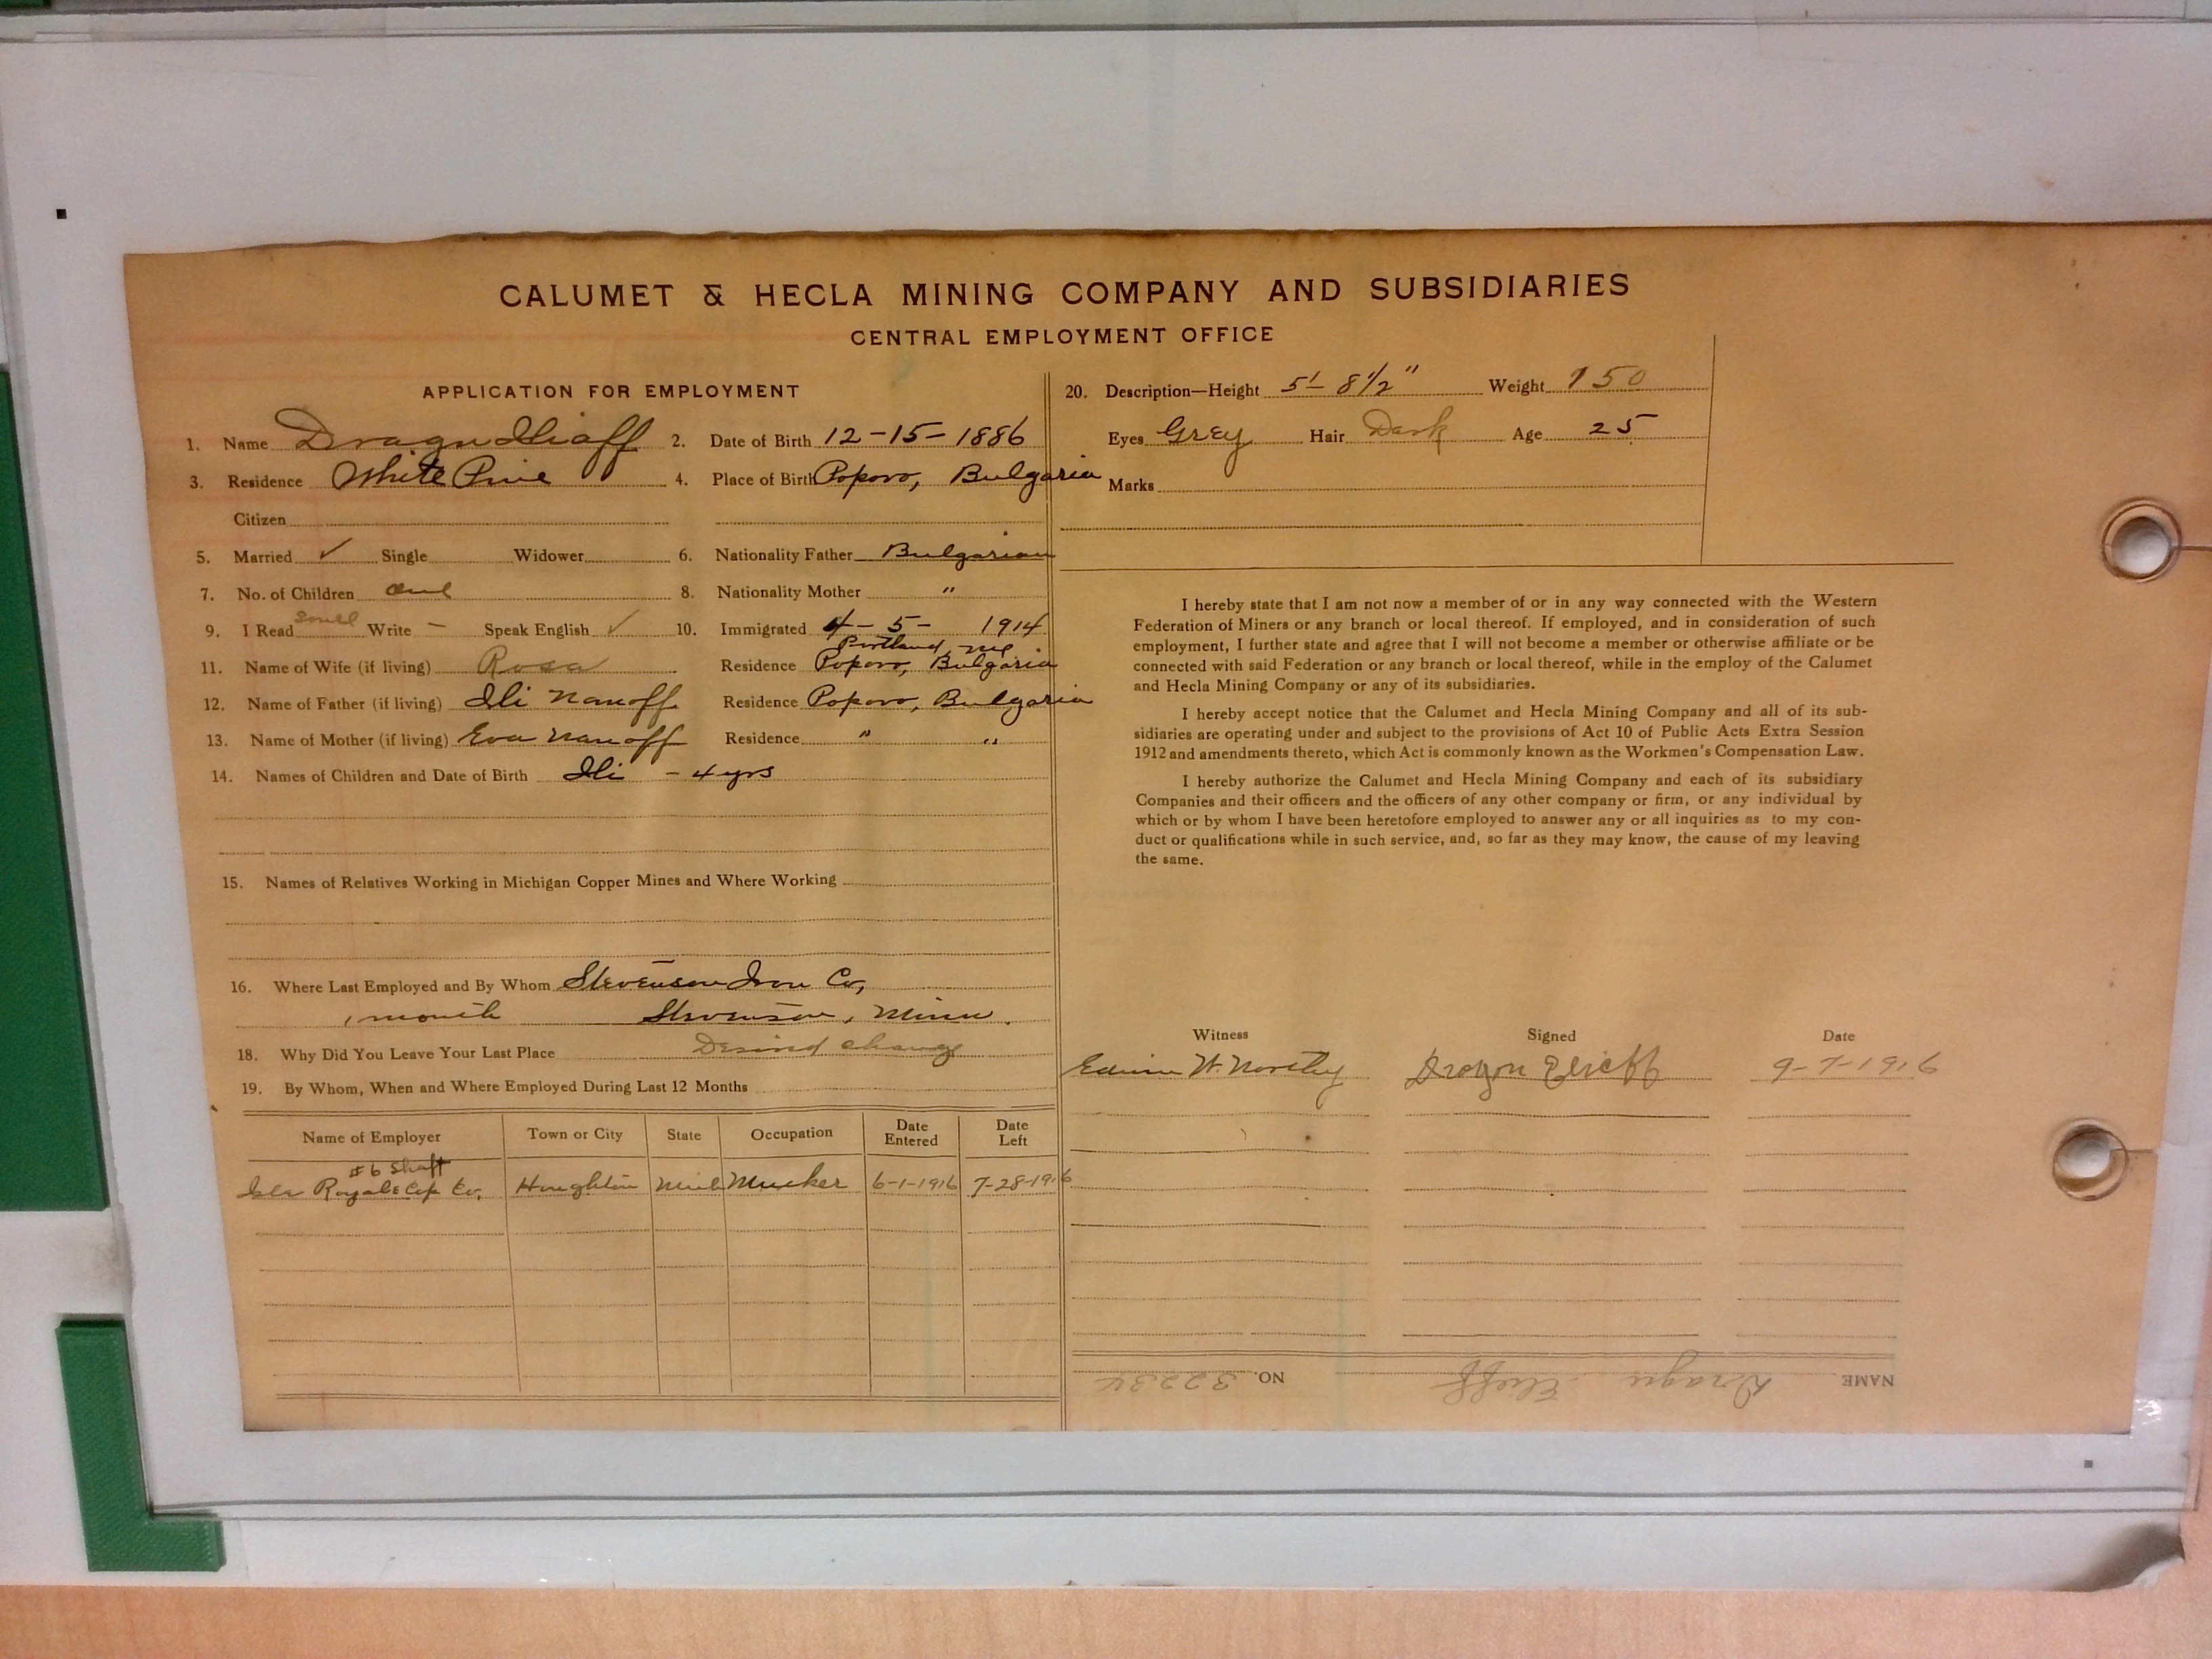 CALUMET & HECLA MINING COMPANY AND SUBSIDIARIES
CENTRAL EMPLOYMENT OFFICE
APPLICATION FOR EMPLOYMENT
1. Name Dragu Iliaff 2. Date of Birth 12-15-1886
3. Residence White Pine 4. Place of Birth Popovo, Bulgaria
Citizen
5. Married ✓ Single Widower 6. Nationality Father Bulgarian
7. No. of Children One 8. Nationality Mother "
9. I Read Write – Speak English ✓ 10. Immigrated 4-5-1914
Portland, Me
11. Name of Wife (if living) Rosa Residence Popovo, Bulgaria
12. Name of Father (if living) Ili Nanoff Residence Popovo, Bulgaria
13. Name of Mother (if living) Eva Nanoff Residence " "
14. Names of Children and Date of Birth Ili - 4 yrs
15. Names of Relatives Working in Michigan Copper Mines and Where Working
16. Where Last Employed and By Whom Stevenson Iron Co,
1 month Stevenson, Minn.
18. Why Did You Leave Your Last Place Desired change
19. By Whom, When and Where Employed During Last 12 Months
Name of Employer Town or City State Occupation Date Entered Date Left
#6 Shaft
Isle Royale Cop Co. Houghton Mich Mucker 6-1-1916 7-28-1916
20. Description—Height 5'-8 1/2" Weight 150
Eyes Grey Hair Dark Age 25
Marks
I hereby state that I am not now a member of or in any way connected with the Western
Federation of Miners or any branch or local thereof. If employed, and in consideration of such
employment, I further state and agree that I will not become a member or otherwise affiliate or be
connected with said Federation or any branch or local thereof, while in the employ of the Calumet
and Hecla Mining Company or any of its subsidiaries.
I hereby accept notice that the Calumet and Hecla Mining Company and all of its sub-
sidiaries are operating under and subject to the provisions of Act 10 of Public Acts Extra Session
1912 and amendments thereto, which Act is commonly known as the Workmen's Compensation Law.
I hereby authorize the Calumet and Hecla Mining Company and each of its subsidiary
Companies and their officers and the officers of any other company or firm, or any individual by
which or by whom I have been heretofore employed to answer any or all inquiries as to my con-
duct or qualifications while in such service, and, so far as they may know, the cause of my leaving
the same.
Witness Signed Date
Edwin W. Northey Dragon Elieff 9-7-1916
NAME Dragu Elieff NO. 32234